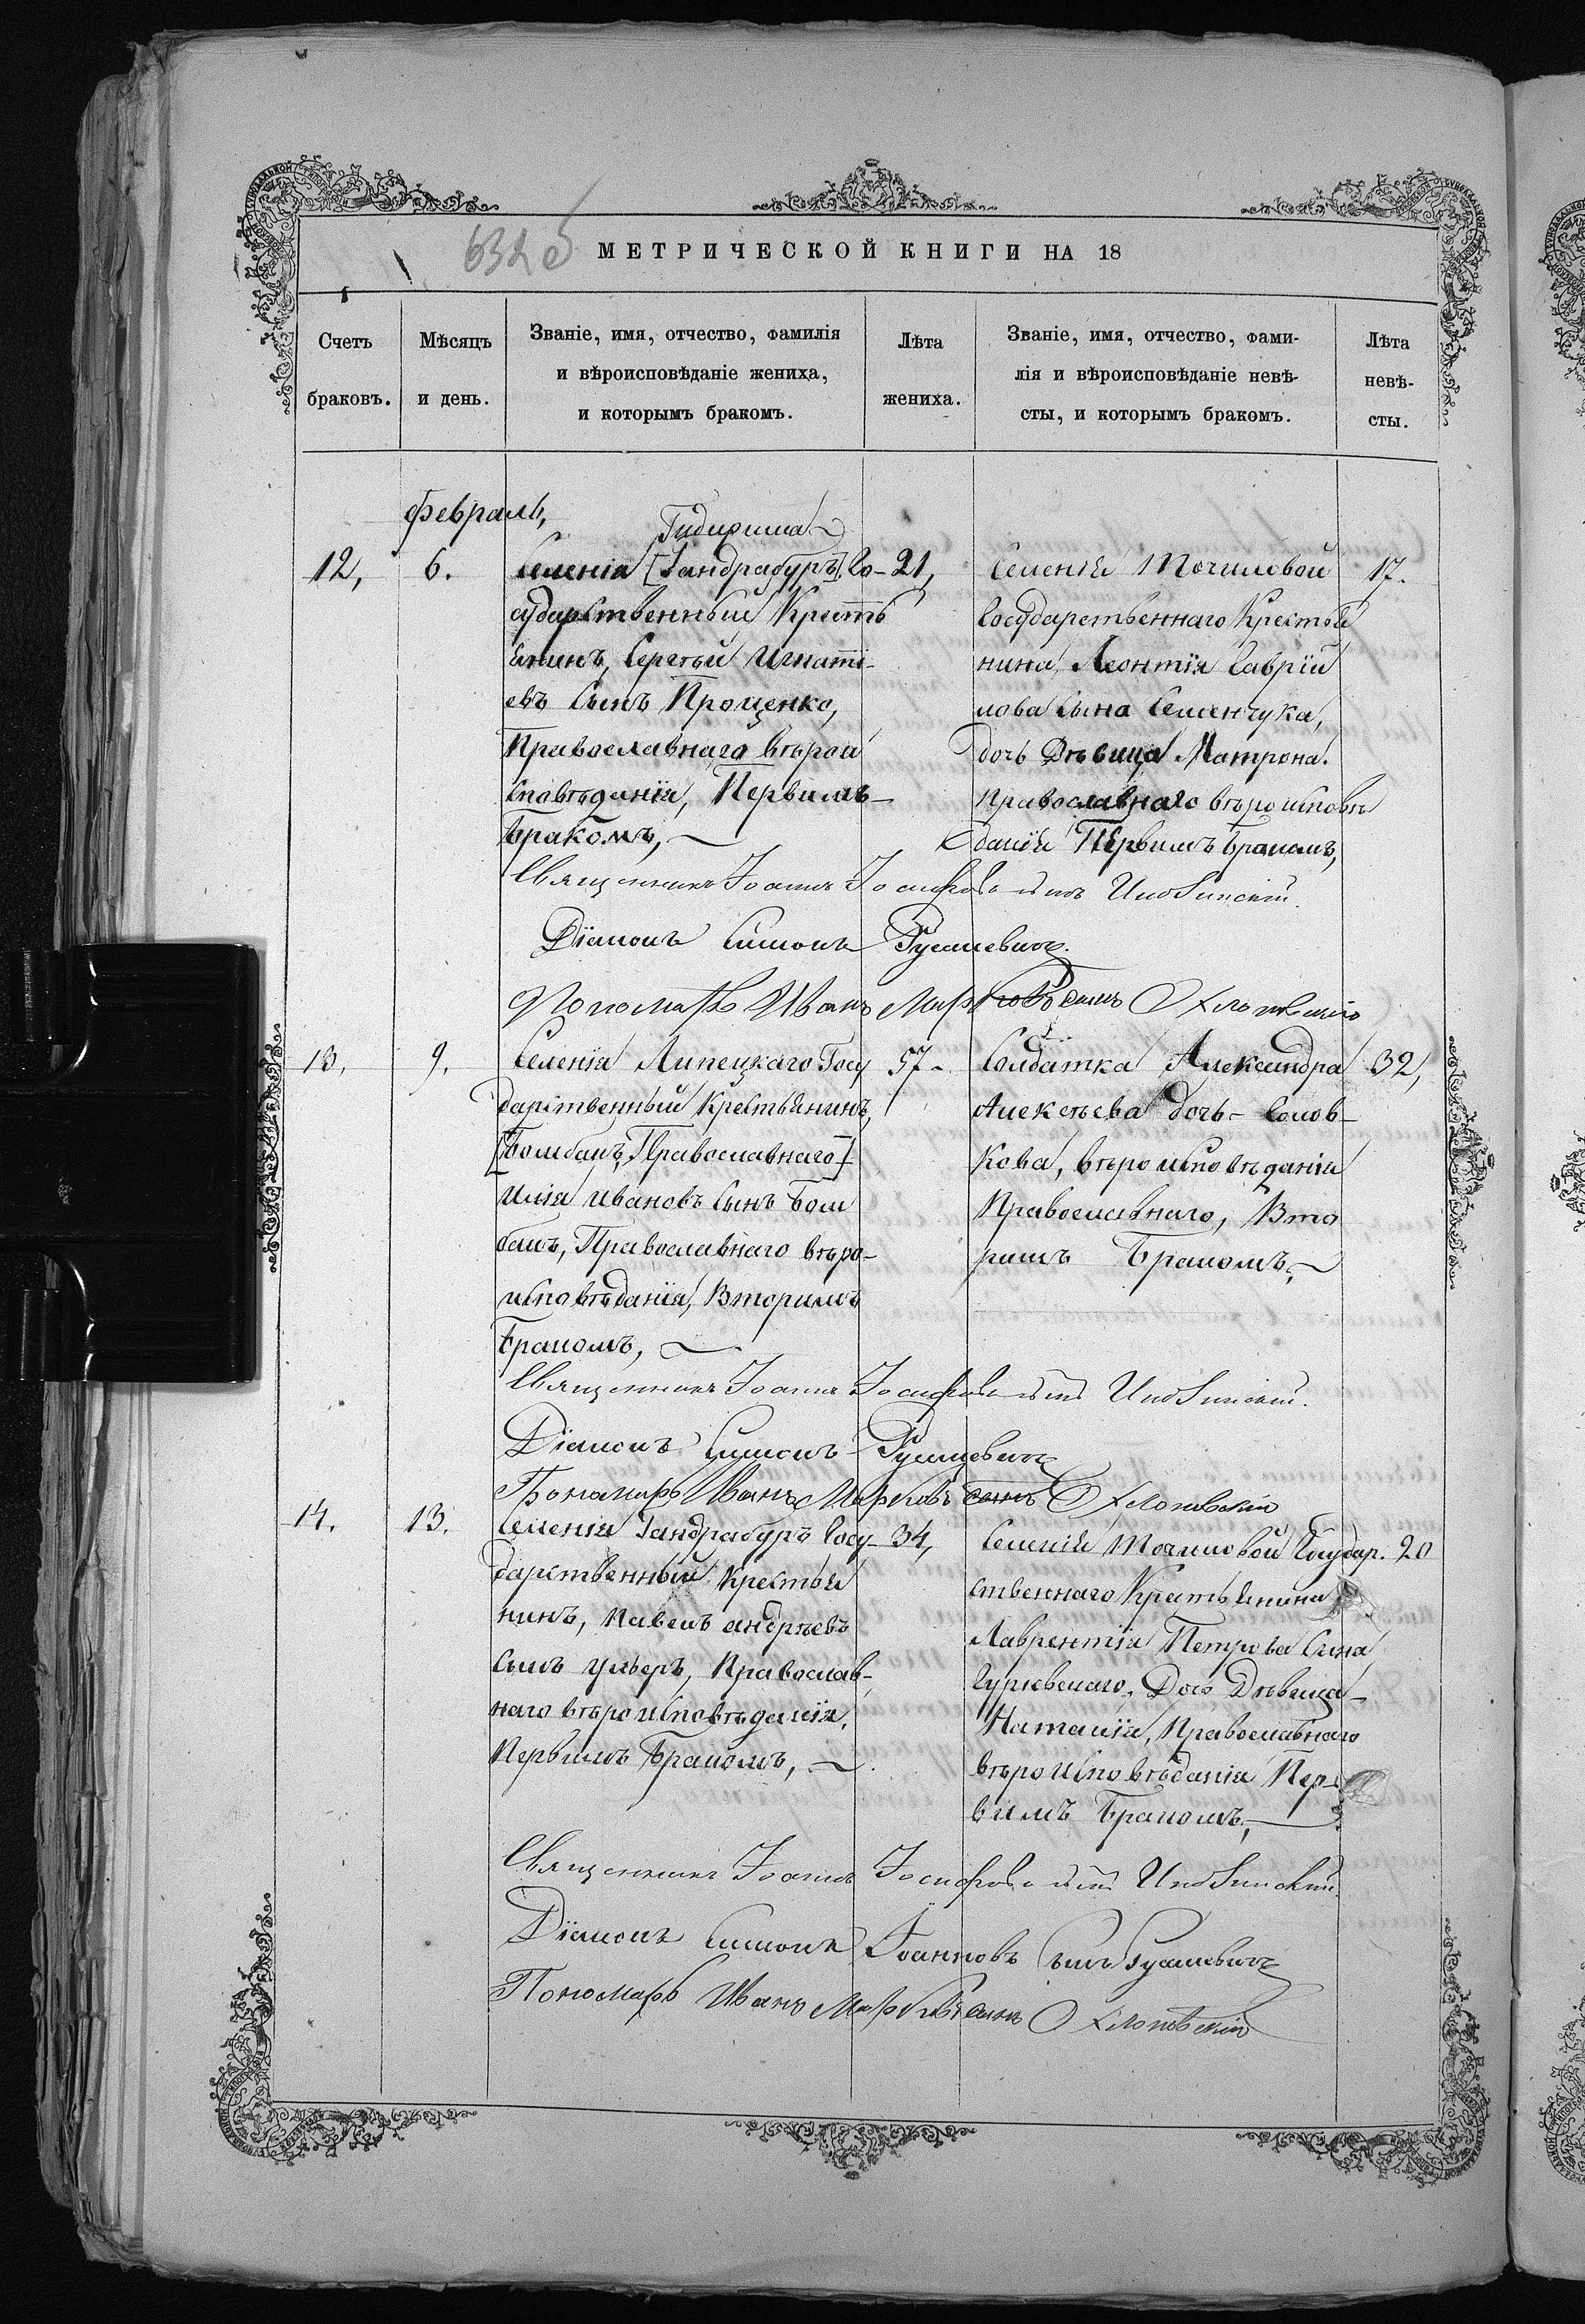 632 об
МЕТРИЧЕСКОЙ КНИГИ НА 18
Счетъ браковъ.
Мѣсяцъ и день.
Званіе, имя, отчество, фамилія
и вѣроисповѣданіе жениха,
и которымъ бракомъ.
Лѣта жениха.
Званіе, имя, отчество, фами-
лія и вѣроисповѣданіе невѣ-
сты, и которымъ бракомъ.
Лѣта невѣ-
сты.
Февраль,
12,
6.
Гидирима
Селенія [Гандрабуръ] Го-
сударственный Кресть
янинъ, Сергѣй Игнаті-
евъ Сынъ Проценко,
Православнаго вѣрои
сповѣданія, Первимъ
бракомъ,
21,
Селенія Точиловой
Государственнаго Крестья
нина, Леонтія Гаврій
лова Сына Семенчука,
дочь Дѣвица Матрона.
Православнаго вѣроисповѣ
данія Первимъ бракомъ,
17.
Священникъ Іоаннъ Іосифовъ сынъ
Діаконъ Симонъ
Пономарь Иванъ Марковъ сынъ
13.
9.
Селенія Липецкаго Госу
дарственный Крестьянинъ,
[Бомбакъ, Православнаго]
Илія Ивановъ Сынъ Бом
бакъ, Православнаго вѣро-
исповѣданія, Вторимъ
бракомъ,
57-
Солдатка Александра
Алексѣева дочь- Солов-
кова, вѣроисповѣданія
Православнаго, Вто
римъ бракомъ,
32,
Священникъ Іоаннъ Іосифовъ сынъ
Діаконъ Симонъ
Пономарь Иванъ Марковъ сынъ
14.
13.
Селенія Гандрабуръ Госу-
дарственный Крестья
нинъ, Павелъ Андрѣевъ
Сынъ Православ-
наго вѣроисповѣданія,
Первимъ бракомъ,
34,
Селенія Точиловой Государ.
ственнаго Крестьянина
Лаврентія Петрова Сина
Гуржевскаго, Дочь Дѣвица
Наталія, Православнаго
вѣроисповѣданія Пер-
вимъ бракомъ,
20
Священникъ Іоаннъ Іосифовъ сынъ
Діаконъ Симонъ Іоанновъ сынъ
Пономарь Иванъ Марковъ сынъ